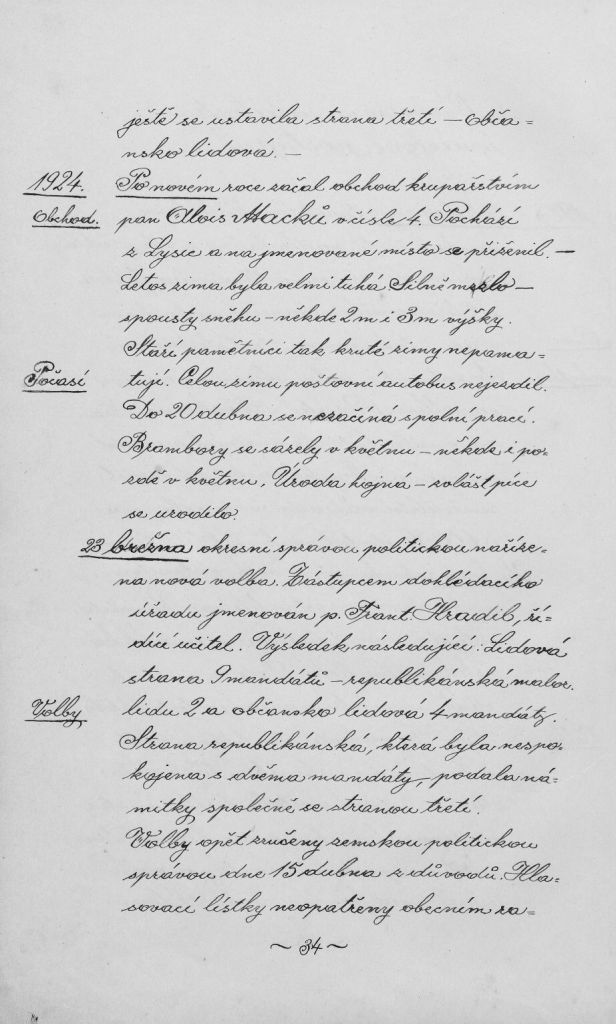 ještě se ustavila strana třetí — obča-
nsko lidová. —
1924. Po novém roce začal obchod krupařstvím
Obchod. pan Alois Macků v čísle 4. Pochází
z Lysic a na jmenované místo se přiženil. —
Letos zima byla velmi tuhá Silně mrzlo —
spousty sněhu — někde 2 m i 3 m výšky.
Staří pamětníci tak kruté zimy nepama-
Počasí tují. Celou zimu poštovní autobus nejezdil.
Do 20 dubna se nezačíná s polní prací.
Brambory se sázely v květnu — někde i po-
zdě v květnu. Úroda hojná — zvlášť píce
se urodilo.
23 března okresní správou politickou naříze-
na nová volba. Zástupcem dohlédacího
úřadu jmenován p. Frant. Hradil, ří-
dící učitel. Výsledek následující: Lidová
strana 9 mandátů — republikánská malor.
Volby lidu 2 a občansko lidová 4 mandáty.
Strana republikánská, která byla nespo-
kojena s dvěma mandáty, podala ná-
mitky společně se stranou třetí.
Volby opět zručeny zemskou politickou
správou dne 15 dubna z důvodů: Hla-
sovací lístky neopatřeny obecním ra-
~ 34 ~